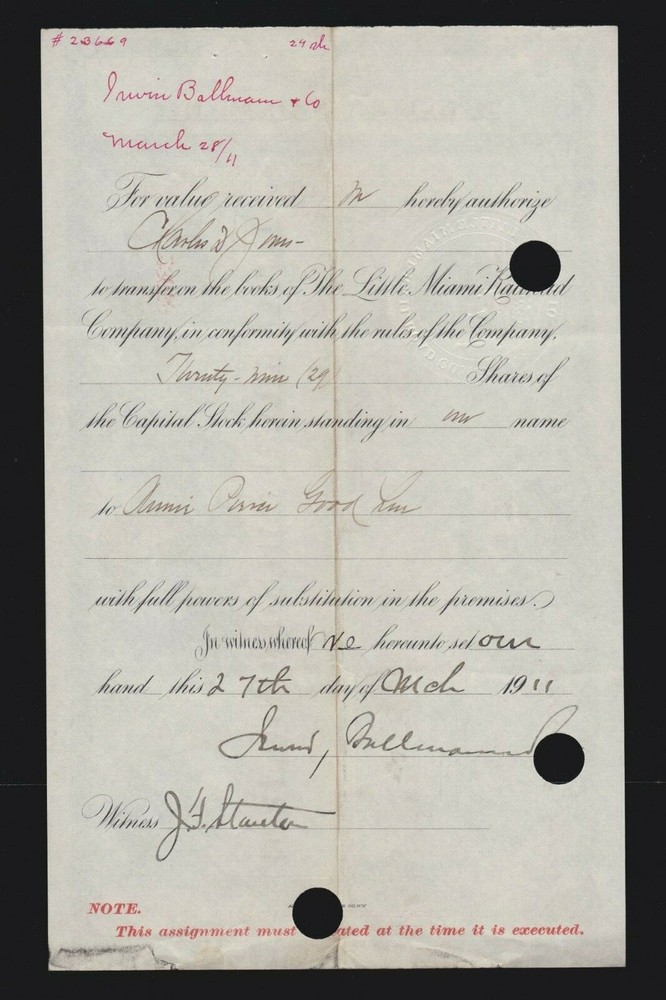 # 23669 24
Irwin Ballmann & Co
March 28/11
For value received hereby authorize
Charles
to transfer on the books of The Little Miami Railroad
Company, in conformity with the rules of the Company,
Twenty-nine (29) Shares of
the Capital Stock herein standing in our name
to Annie
with full powers of substitution in the premises.
In witness whereof we hereunto set our
hand this 27th day of Mch 1911
Irwin, Ballmann
Witness J.F. Staunton
NOTE.
This assignment must ated at the time it is executed.